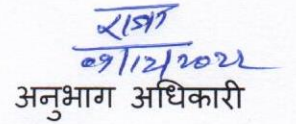 ०१/12/2022
अनुभाग अधिकारी